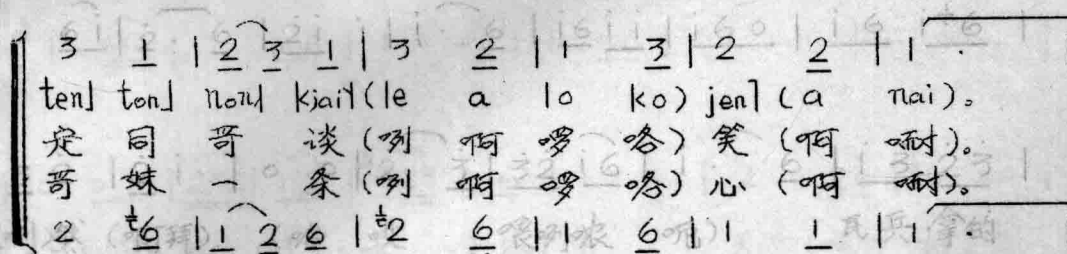 3 1 | 2 3 1 | 3 2 | 1 3 | 2 2 | 1 ·
ten˩ ton˩ non˩ kjai˥ (le a lo ko) jen˥ (a nai)。
定同哥谈(咧啊啰咯)笑(啊嗬)。
哥妹一条(咧啊啰咯)心(啊嗬)。
2 6 | 1 2 6 | 2 6 | 1 6 | 1 1 | 1 ·